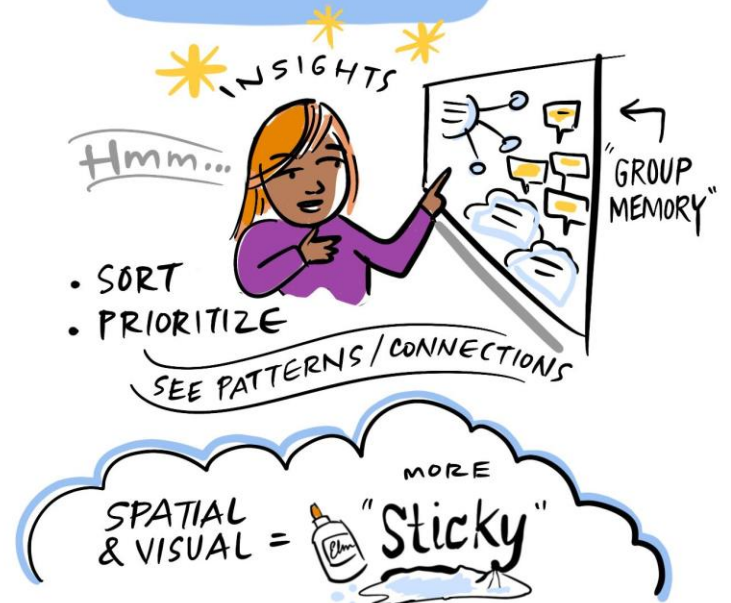 INSIGHTS
Hmm...
"GROUP
MEMORY"
• SORT
• PRIORITIZE
SEE PATTERNS/CONNECTIONS
SPATIAL
& VISUAL =
Elm
MORE
"Sticky"